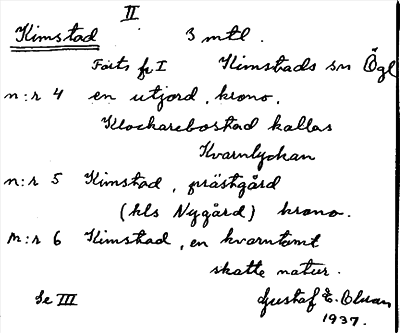 II
Kimstad 3 mtl.
Forts fr I Kimstads sn Ögl
n:r 4 en utjord, krono.
Klockarebostad kallas
Kvarnlyckan
n:r 5 Kimstad, prästgård
(kls Nygård) krono.
n:r 6 Kimstad, en kvarntomt
skatte natur.
Se III Gustaf E. Olsson
1937.